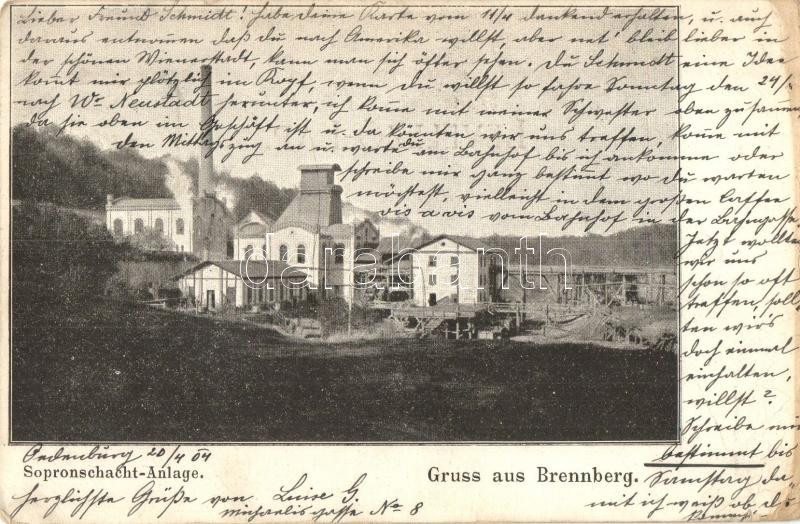 Lieber Freund Schmidt! habe Deine Karte vom 11/4 dankend erhalten, u. auch
daraus entnommen daß du nach Amerika willst, aber net! bleib lieber in
der schönen Wienerstadt, kann man sich öfter sehen. Du Schmidt eine Idee
kommt mir plötzlich im Kopf, wenn du willst so fahre Sonntag den 24/4
nach Wr Neustadt herunter, ich kome mit meiner Schwester oben zusamen
da sie oben im Geschäft ist u. da könnten wir uns treffen, kome mit
den Mittagszug an u. warte du am Bahnhof bis ich ankomme oder
schreibe mir ganz bestimt wo du warten
möchtest, vielleicht in dem großen Caffee
vis a vis vom Bahnhof in der Bahngasse
Jetzt wollten
wir uns
schon so oft
treffen, soll
ten wirs
doch einmal
einhalten,
willst?
Schreibe mir
bestimmt bis
Samstag da-
mit ich weiß ob du
Oedenburg 20/4 04
Sopronschacht-Anlage.
Gruss aus Brennberg.
herzlichste Grüße von Luise G.
Michaelisgasse No 8
darabanth